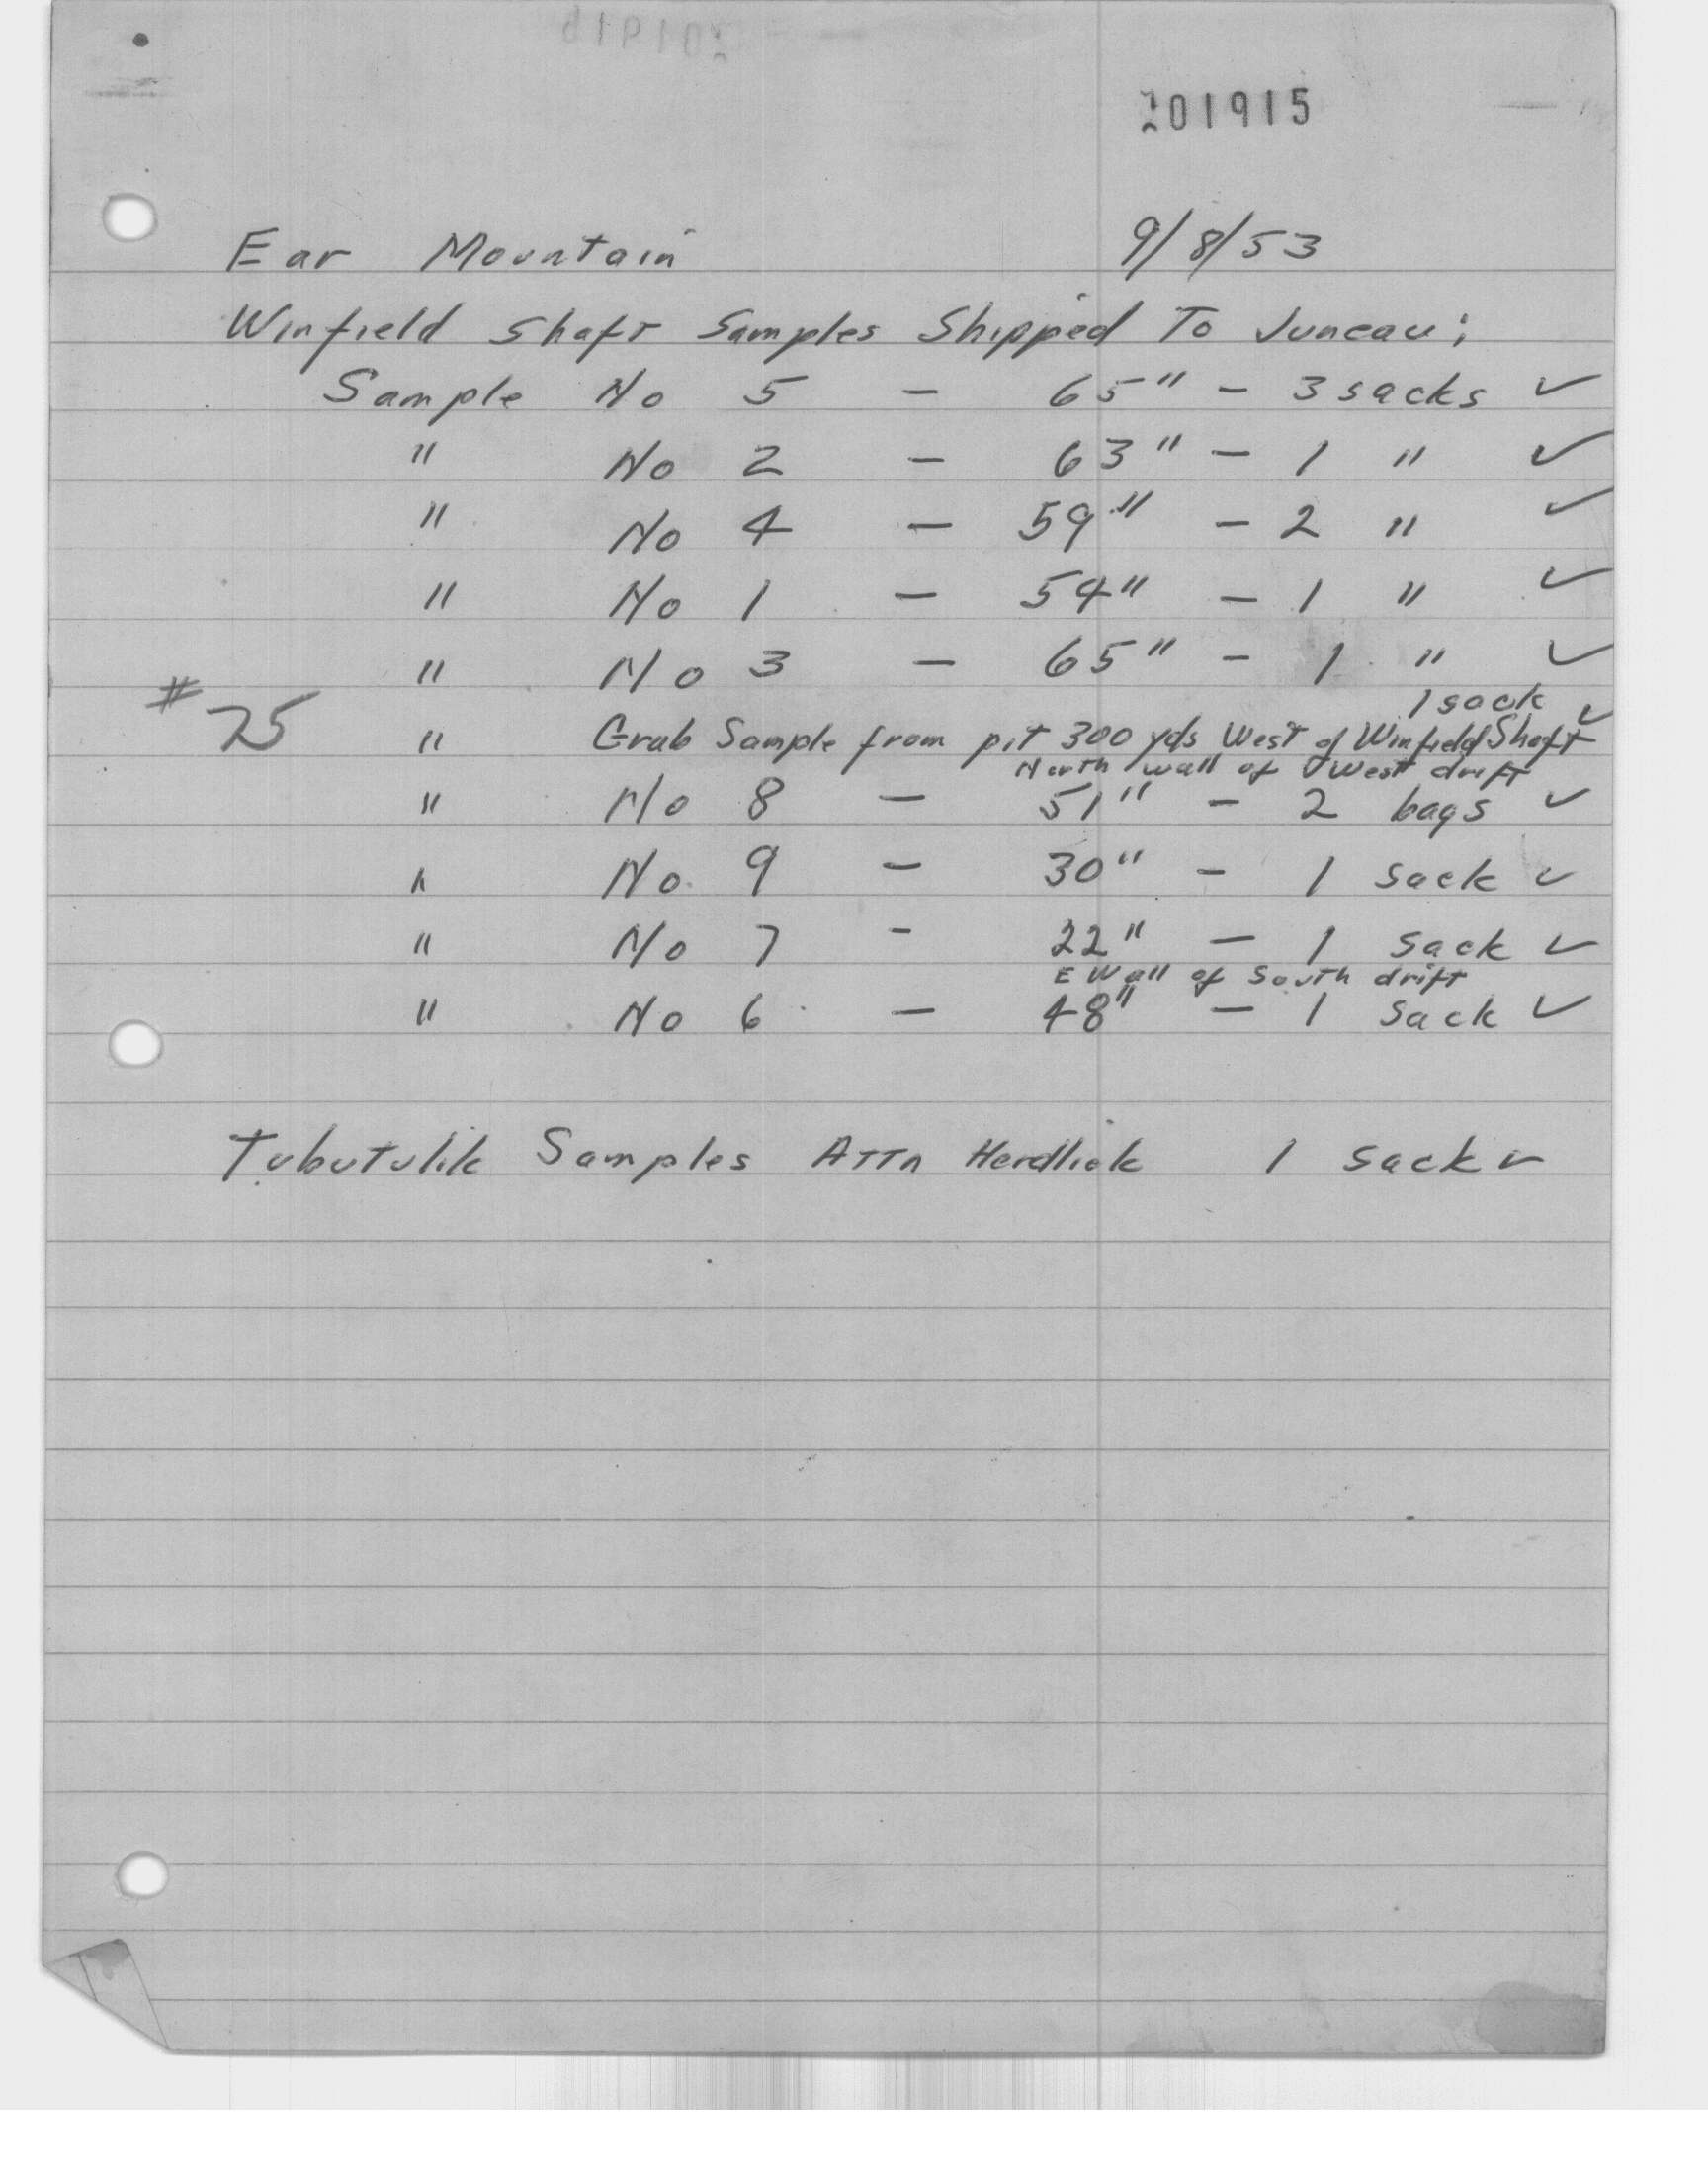 201915
Ear Mountain 9/8/53
Winfield Shaft Samples Shipped To Juneau;
Sample No 5 - 65" - 3 sacks ✓
" No 2 - 63" - 1 " ✓
" No 4 - 59" - 2 " ✓
" No 1 - 54" - 1 " ✓
" No 3 - 65" - 1 " ✓
1 sack ✓
# 25 " Grab Sample from pit 300 yds West of Winfield Shaft
North wall of West drift
" No 8 - 51" - 2 bags ✓
" No. 9 - 30" - 1 sack ✓
" No 7 - 22" - 1 sack ✓
E Wall of South drift
" No 6 - 48" - 1 sack ✓
Tubutulik Samples ATTn Herdlick 1 sack ✓